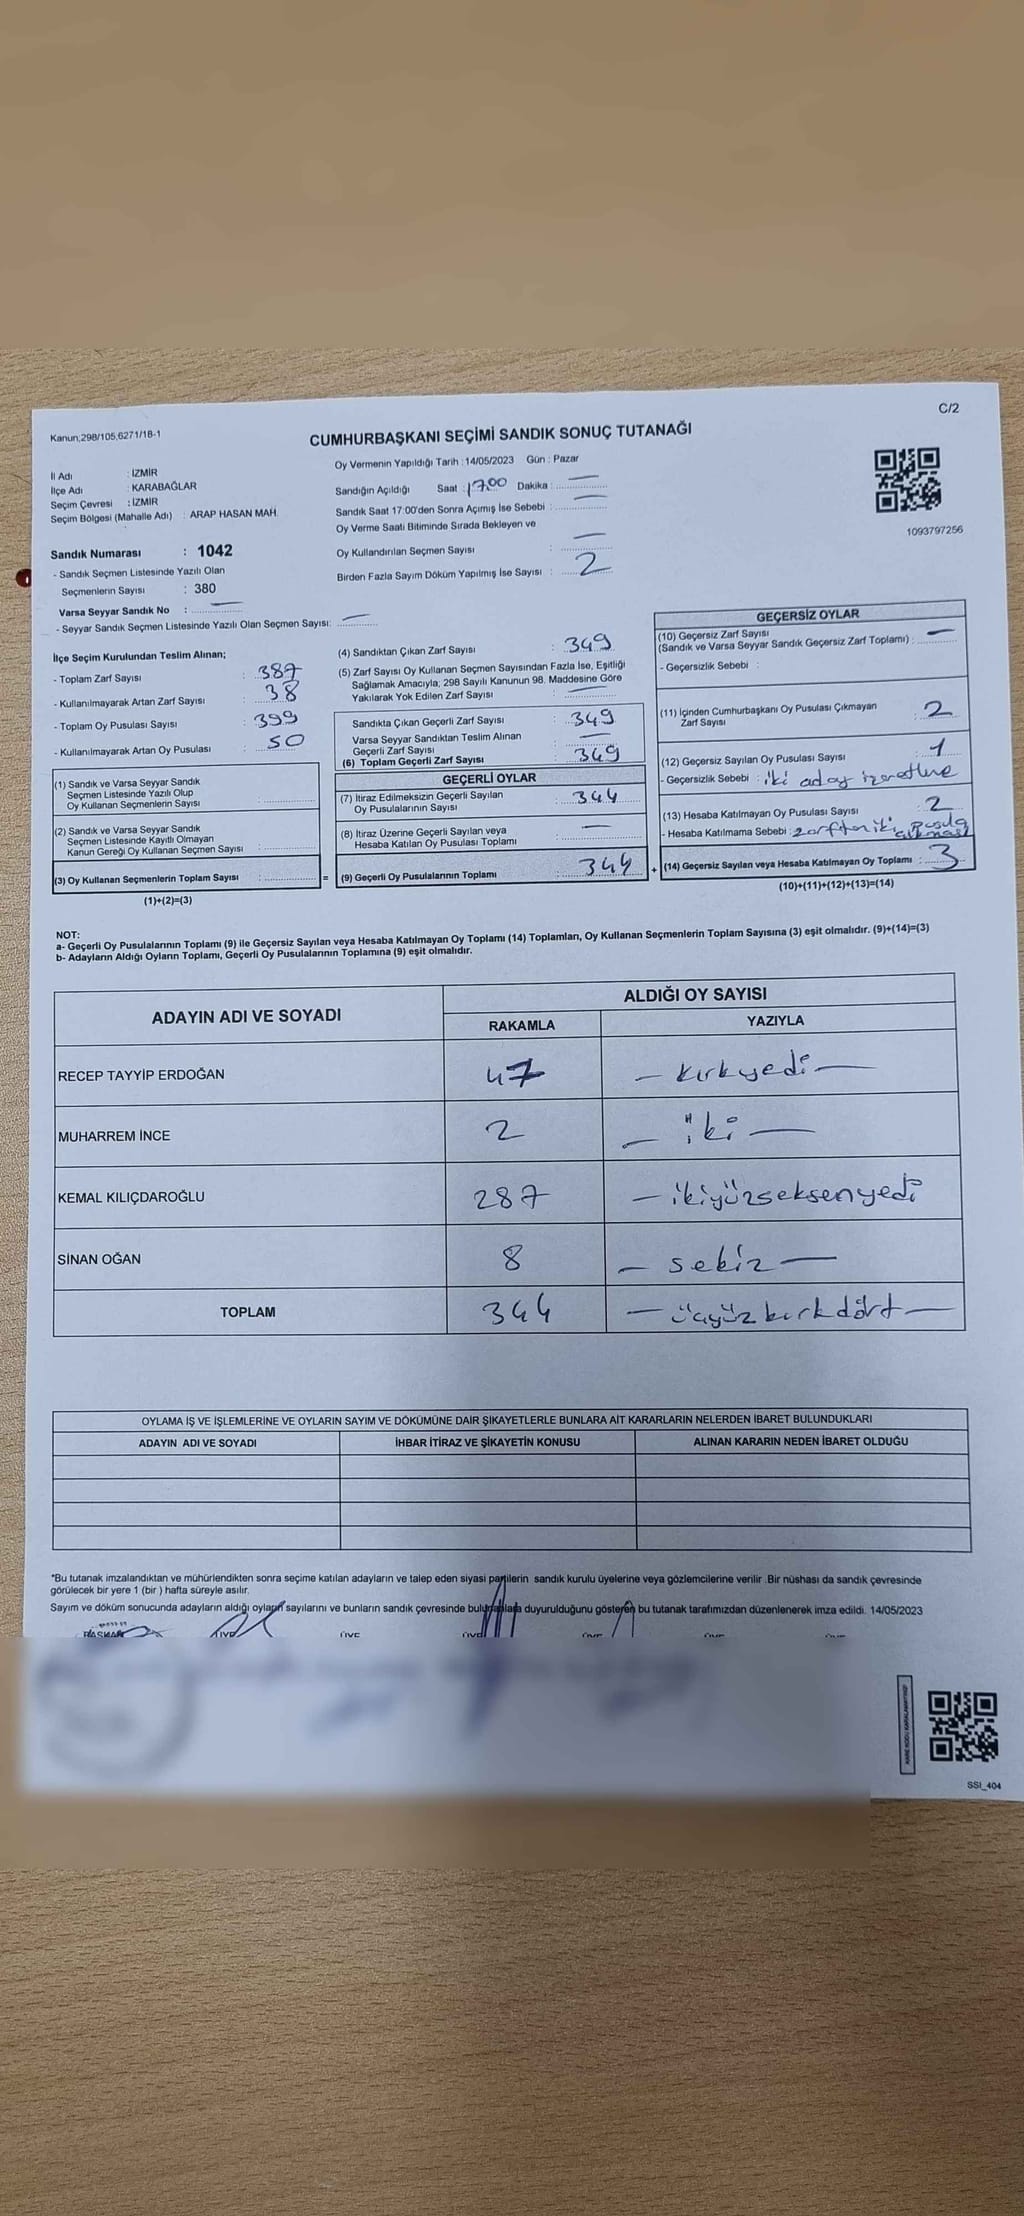 C/2
Kanun;298/105,6271/18-1
CUMHURBAŞKANI SEÇİMİ SANDIK SONUÇ TUTANAĞI
İl Adı : İZMİR
İlçe Adı : KARABAĞLAR
Seçim Çevresi : İZMİR
Seçim Bölgesi (Mahalle Adı) : ARAP HASAN MAH.
Sandık Numarası : 1042
- Sandık Seçmen Listesinde Yazılı Olan
Seçmenlerin Sayısı : 380
Varsa Seyyar Sandık No : —
- Seyyar Sandık Seçmen Listesinde Yazılı Olan Seçmen Sayısı: —
Oy Vermenin Yapıldığı Tarih : 14/05/2023 Gün : Pazar
Sandığın Açıldığı Saat : 17.00 Dakika : —
Sandık Saat 17:00'den Sonra Açımış İse Sebebi : —
Oy Verme Saati Bitiminde Sırada Bekleyen ve
Oy Kullandırılan Seçmen Sayısı : —
Birden Fazla Sayım Döküm Yapılmış İse Sayısı : 2
1093797256
İlçe Seçim Kurulundan Teslim Alınan;
- Toplam Zarf Sayısı : 387
- Kullanılmayarak Artan Zarf Sayısı : 38
- Toplam Oy Pusulası Sayısı : 399
- Kullanılmayarak Artan Oy Pusulası : 50
(1) Sandık ve Varsa Seyyar Sandık
Seçmen Listesinde Yazılı Olup
Oy Kullanan Seçmenlerin Sayısı :
(2) Sandık ve Varsa Seyyar Sandık
Seçmen Listesinde Kayıtlı Olmayan
Kanun Gereği Oy Kullanan Seçmen Sayısı :
(3) Oy Kullanan Seçmenlerin Toplam Sayısı : =
(1)+(2)=(3)
(4) Sandıktan Çıkan Zarf Sayısı : 349
(5) Zarf Sayısı Oy Kullanan Seçmen Sayısından Fazla İse, Eşitliği
Sağlamak Amacıyla; 298 Sayılı Kanunun 98. Maddesine Göre
Yakılarak Yok Edilen Zarf Sayısı : —
Sandıkta Çıkan Geçerli Zarf Sayısı : 349
Varsa Seyyar Sandıktan Teslim Alınan
Geçerli Zarf Sayısı : —
(6) Toplam Geçerli Zarf Sayısı : 349
GEÇERLİ OYLAR
(7) İtiraz Edilmeksizin Geçerli Sayılan
Oy Pusulalarının Sayısı : 344
(8) İtiraz Üzerine Geçerli Sayılan veya
Hesaba Katılan Oy Pusulası Toplamı : —
(9) Geçerli Oy Pusulalarının Toplamı : 344 +
GEÇERSİZ OYLAR
(10) Geçersiz Zarf Sayısı
(Sandık ve Varsa Seyyar Sandık Geçersiz Zarf Toplamı) : —
- Geçersizlik Sebebi :
(11) İçinden Cumhurbaşkanı Oy Pusulası Çıkmayan
Zarf Sayısı : 2
(12) Geçersiz Sayılan Oy Pusulası Sayısı : 1
- Geçersizlik Sebebi : iki aday
(13) Hesaba Katılmayan Oy Pusulası Sayısı : 2
- Hesaba Katılmama Sebebi : zarftan iki pusula çıkması
(14) Geçersiz Sayılan veya Hesaba Katılmayan Oy Toplamı : 3
(10)+(11)+(12)+(13)=(14)
NOT:
a- Geçerli Oy Pusulalarının Toplamı (9) ile Geçersiz Sayılan veya Hesaba Katılmayan Oy Toplamı (14) Toplamları, Oy Kullanan Seçmenlerin Toplam Sayısına (3) eşit olmalıdır. (9)+(14)=(3)
b- Adayların Aldığı Oyların Toplamı, Geçerli Oy Pusulalarının Toplamına (9) eşit olmalıdır.
ADAYIN ADI VE SOYADI
ALDIĞI OY SAYISI
RAKAMLA YAZIYLA
RECEP TAYYİP ERDOĞAN 47 — kırkyedi —
MUHARREM İNCE 2 — iki —
KEMAL KILIÇDAROĞLU 287 — ikiyüzseksenyedi
SİNAN OĞAN 8 — sekiz —
TOPLAM 344 — üçyüzkırkdört —
OYLAMA İŞ VE İŞLEMLERİNE VE OYLARIN SAYIM VE DÖKÜMÜNE DAİR ŞİKAYETLERLE BUNLARA AİT KARARLARIN NELERDEN İBARET BULUNDUKLARI
ADAYIN ADI VE SOYADI İHBAR İTİRAZ VE ŞİKAYETİN KONUSU ALINAN KARARIN NEDEN İBARET OLDUĞU
*Bu tutanak imzalandıktan ve mühürlendikten sonra seçime katılan adayların ve talep eden siyasi partilerin sandık kurulu üyelerine veya gözlemcilerine verilir .Bir nüshası da sandık çevresinde
görülecek bir yere 1 (bir ) hafta süreyle asılır.
Sayım ve döküm sonucunda adayların aldığı oyların sayılarını ve bunların sandık çevresinde bulunanlara duyurulduğunu gösteren bu tutanak tarafımızdan düzenlenerek imza edildi. 14/05/2023
BAŞKAN ÜYE ÜYE ÜYE ÜYE ÜYE ÜYE
SSI_404